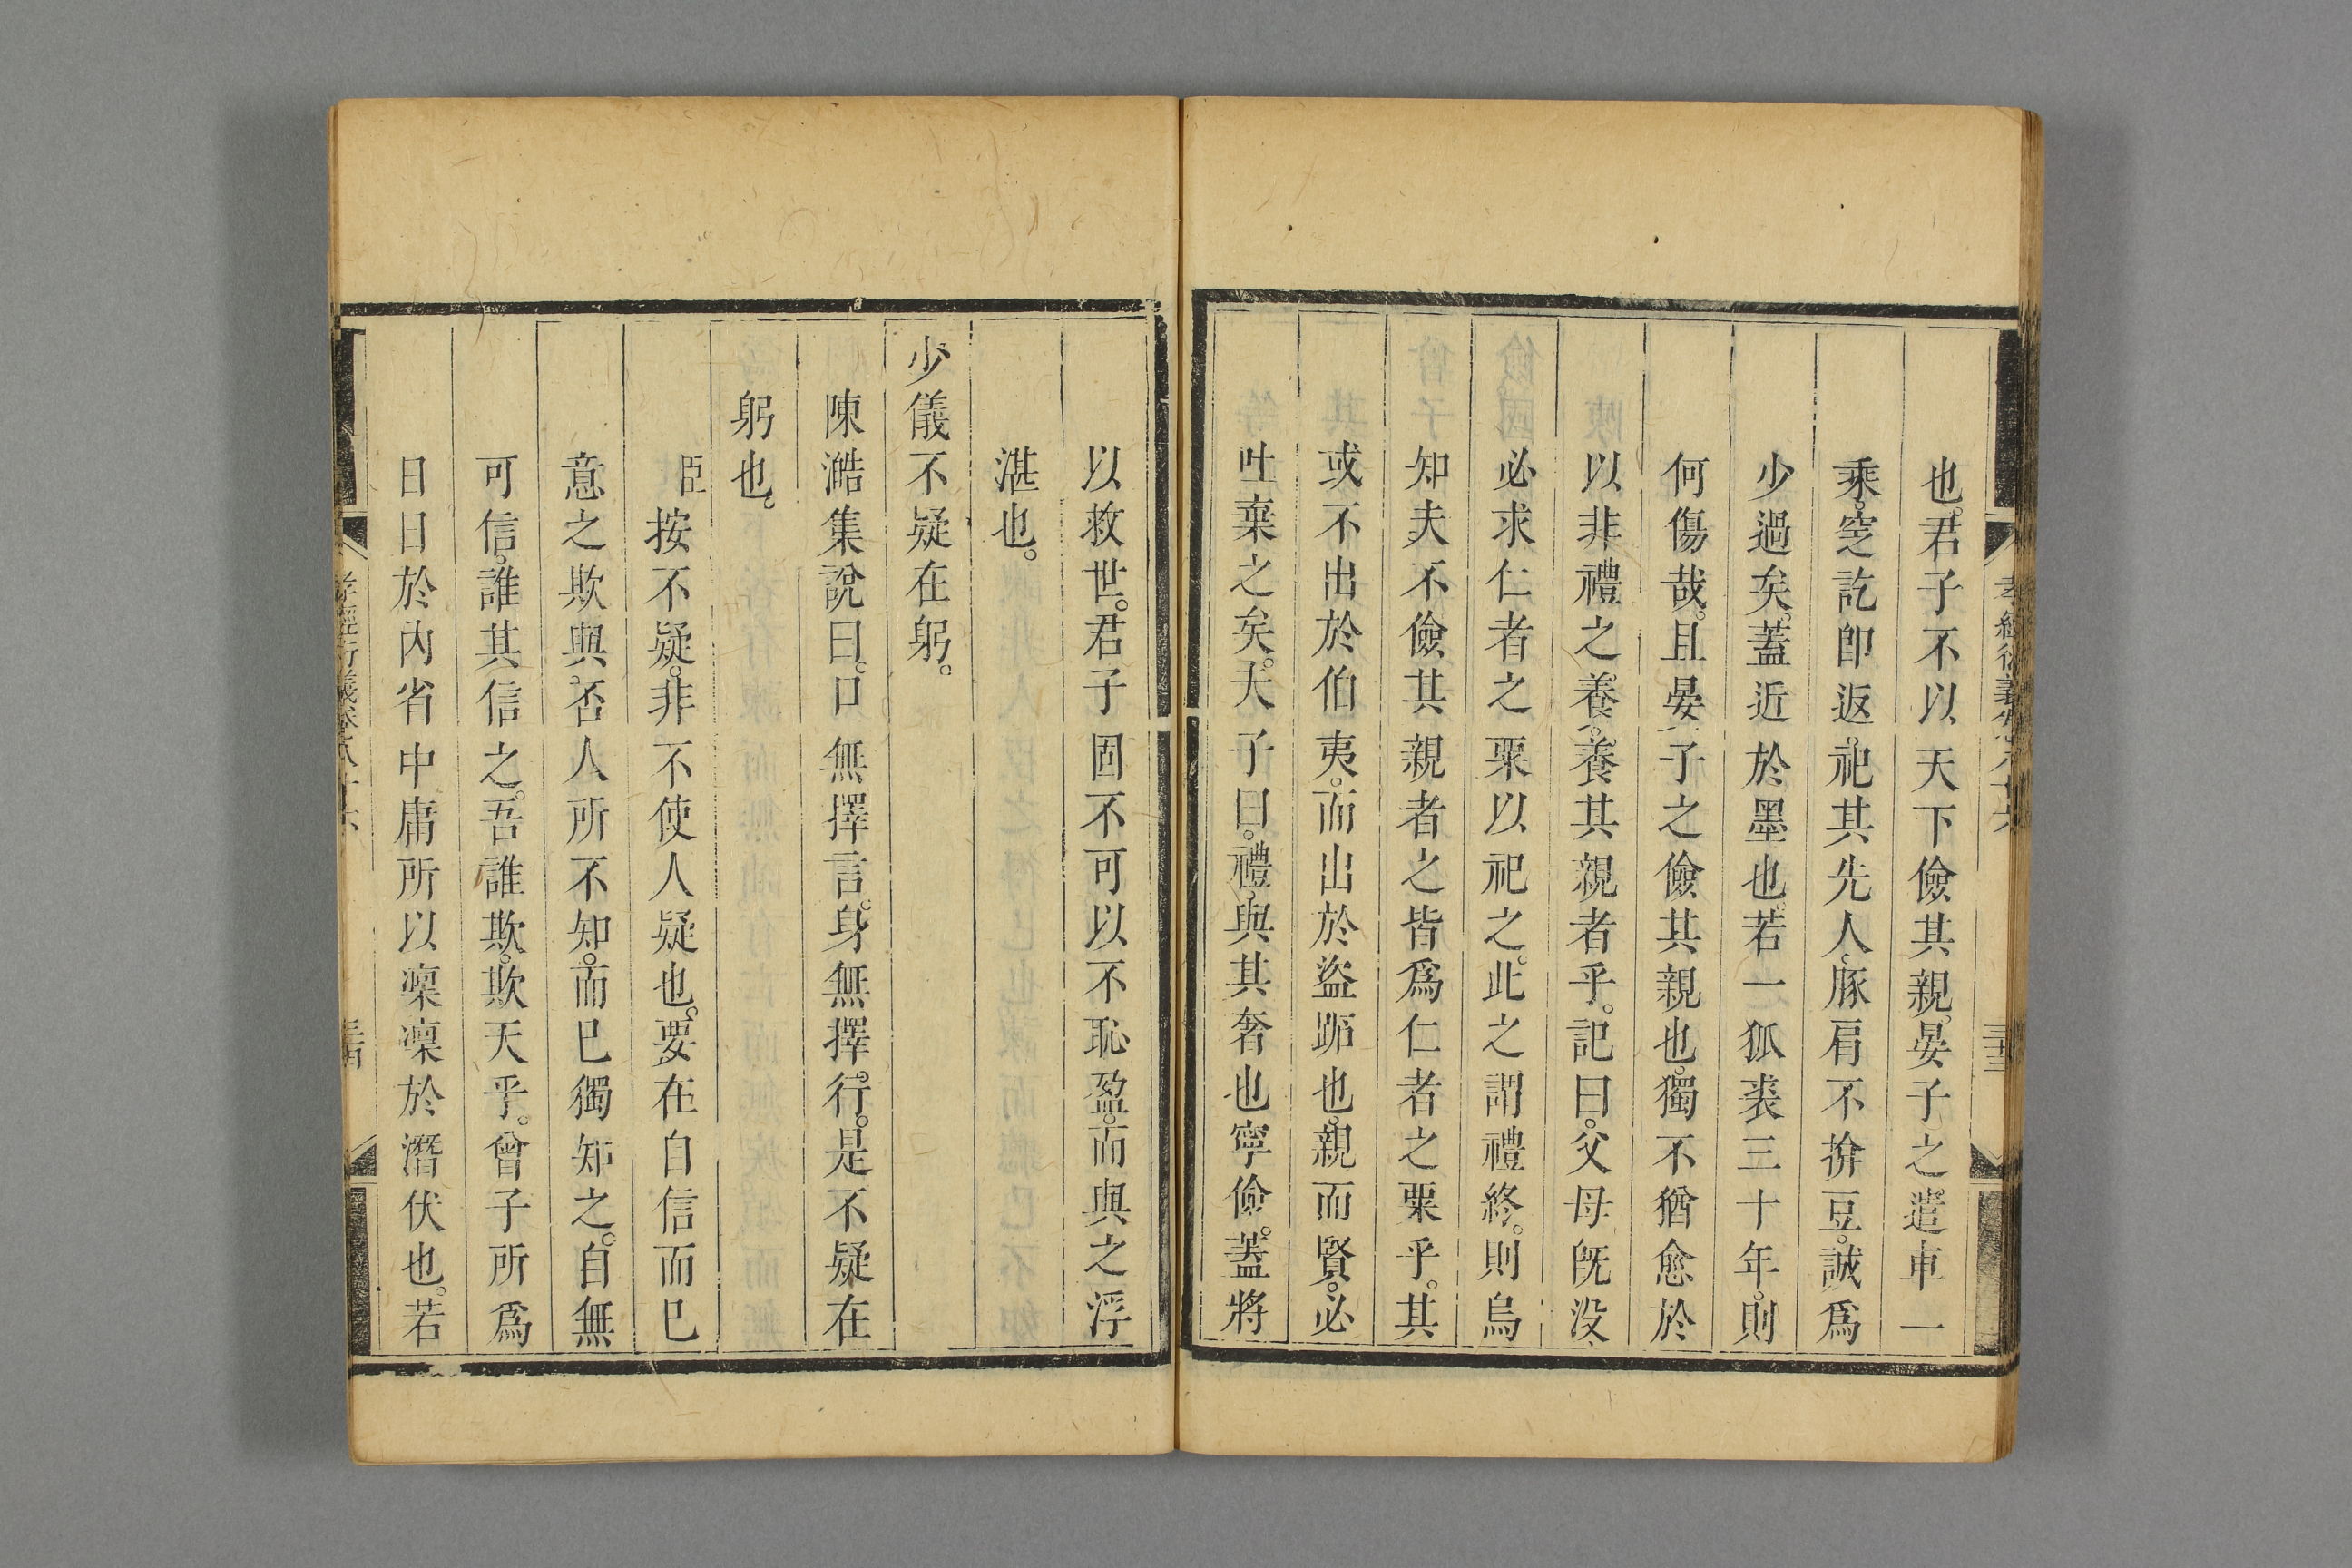 也。君子不以天下儉其親。晏子之遣車一
乘。窆訖卽返。祀其先人。豚肩不揜豆。誠爲
少過矣。蓋近於墨也。若一狐裘三十年。則
何傷哉。且晏子之儉其親也。獨不猶愈於
以非禮之養。養其親者乎。記曰。父母旣没。
必求仁者之粟以祀之。此之謂禮終。則烏
知夫不儉其親者之皆爲仁者之粟乎。其
或不出於伯夷。而出於盜跖也。親而賢。必
吐棄之矣。夫子曰。禮與其奢也寧儉。蓋將
以救世。君子固不可以不恥盈。而與之浮
湛也。
少儀不疑在躬。
陳澔集說曰。口無擇言。身無擇行。是不疑在
躬也。
臣按不疑。非不使人疑也。要在自信而已
意之欺與。否人所不知。而已獨知之。自無
可信。誰其信之。吾誰欺。欺天乎。曾子所爲
日日於內省中庸所以凜凜於潛伏也。若
孝經衍義卷八十六
三十四